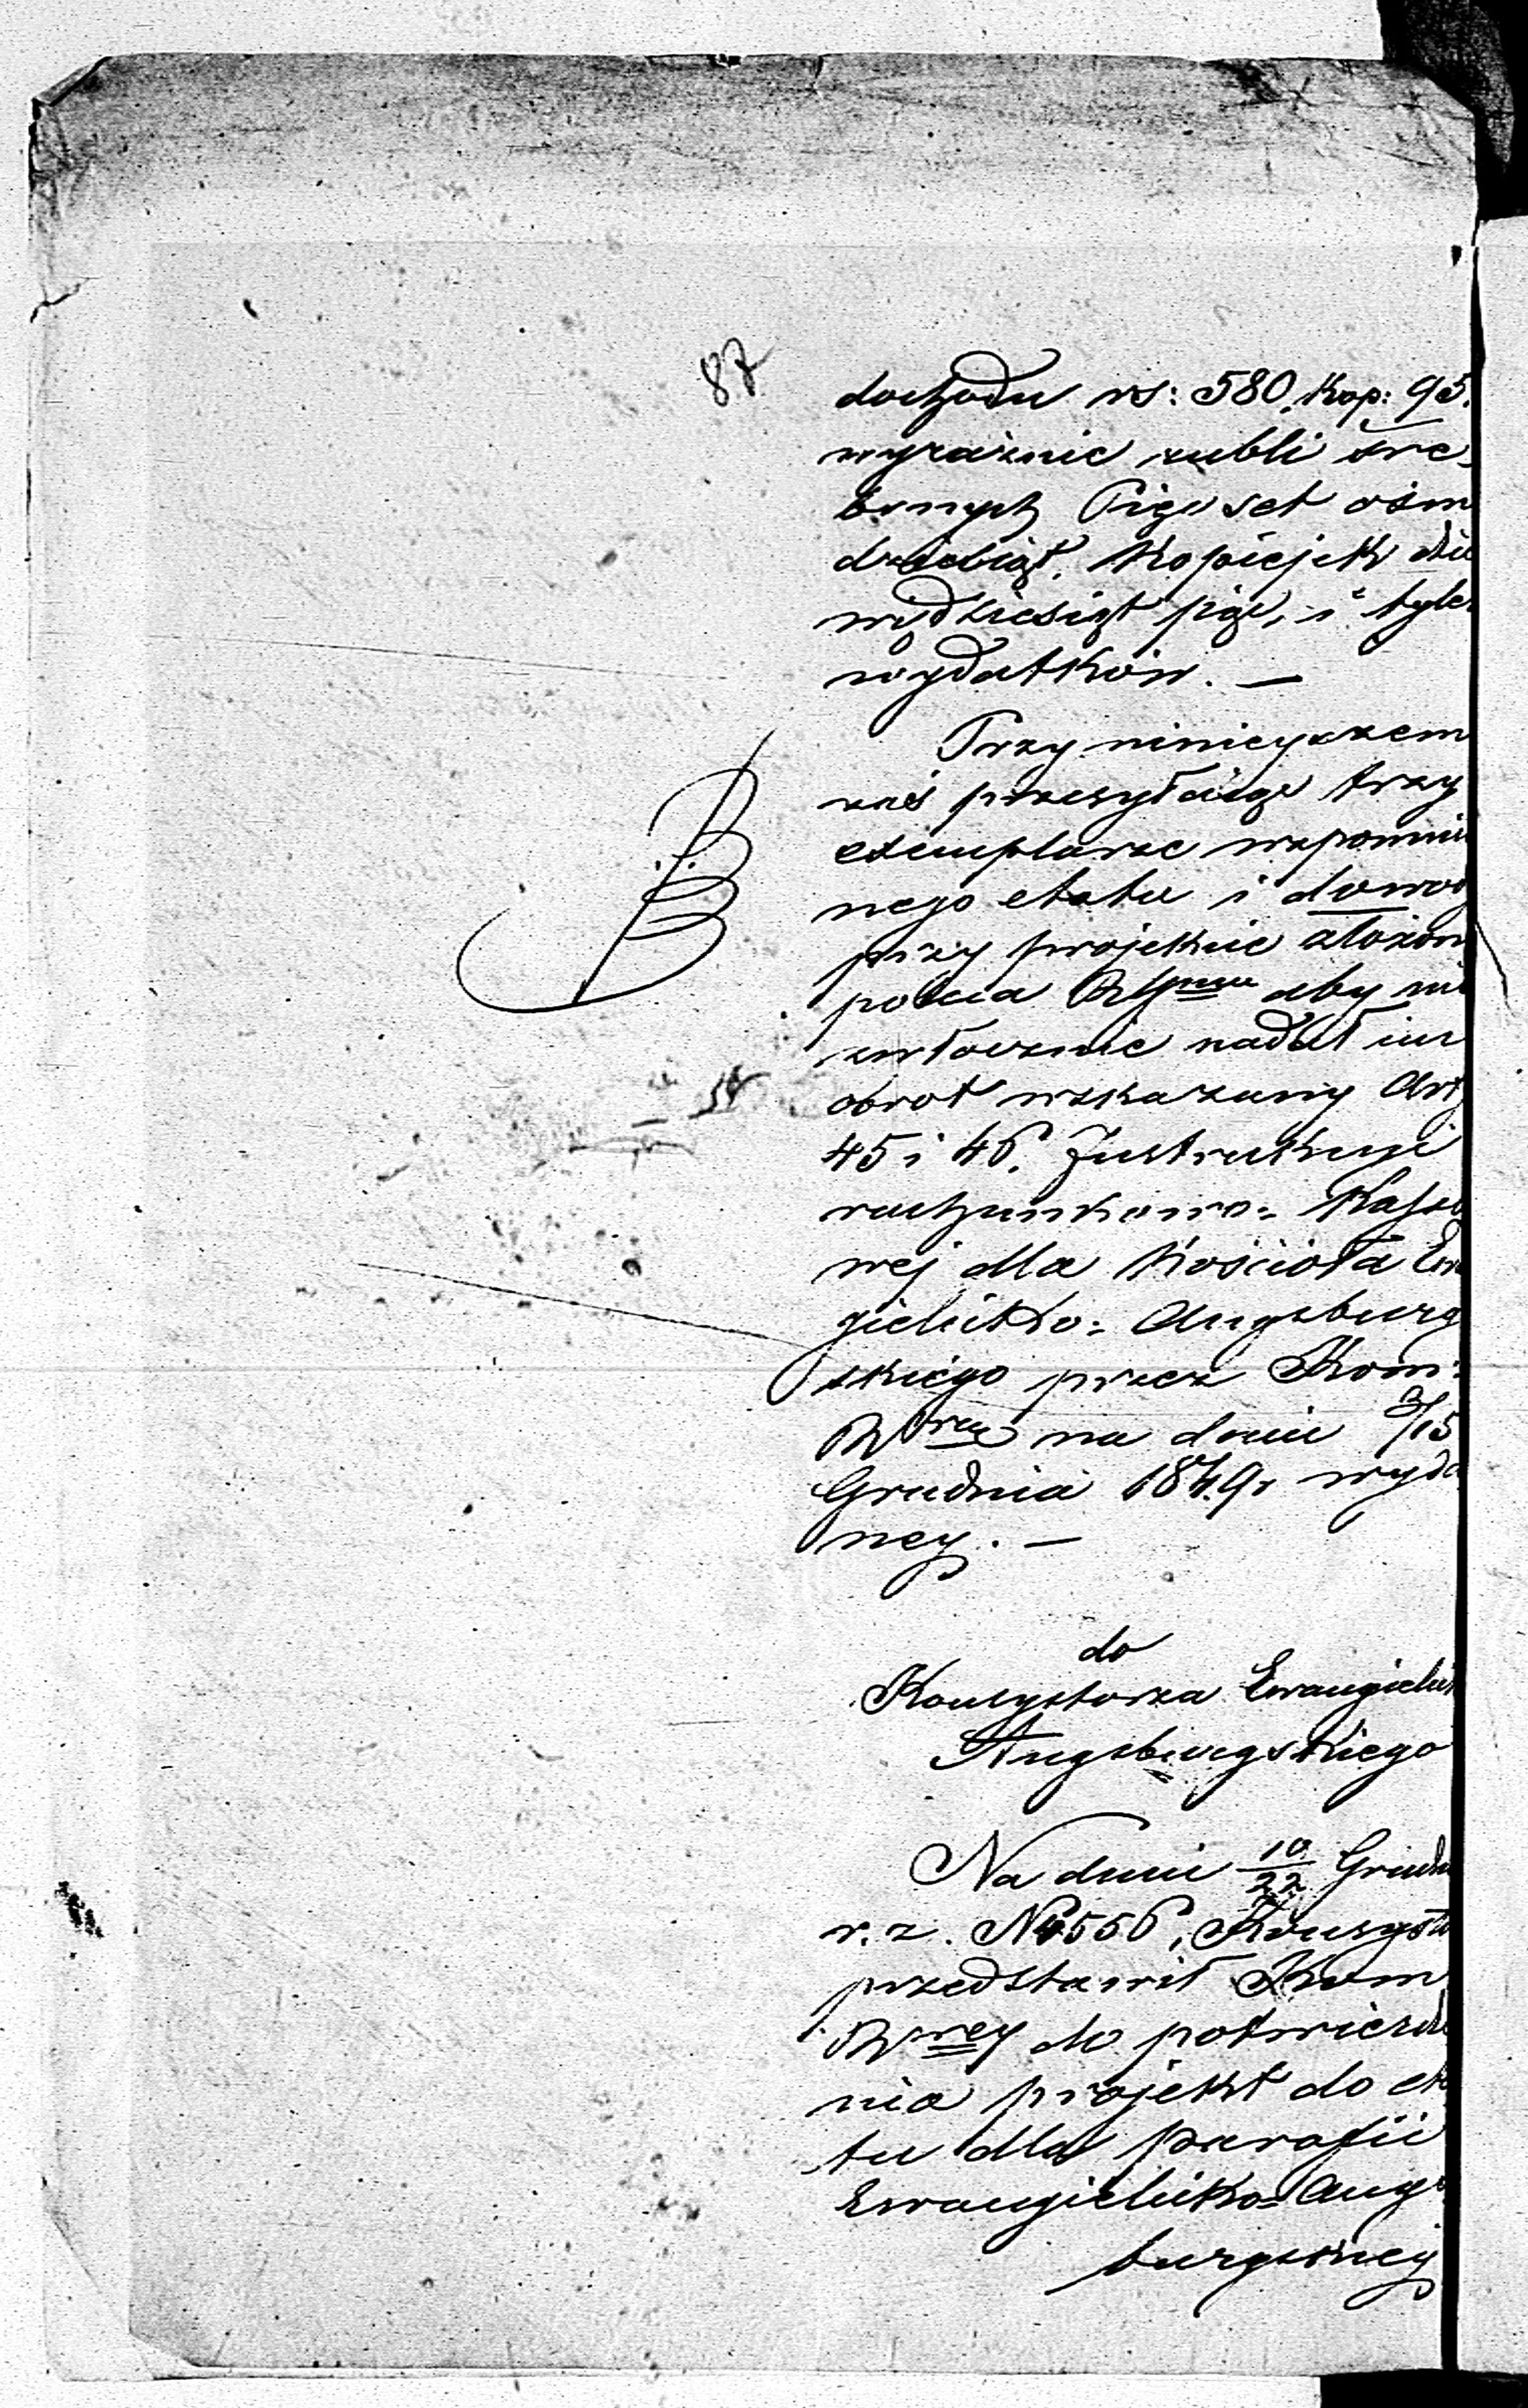 87
dochodu rs: 580. kop: 95.
wyraźnie rubli sre-
brnych Pięćset ośm
dziesiąt. Kopiejek dzie
więdziesiąt pięć, i tyleż
wydatków. —
Przy ninieyszem
zaś przesyłaiąc trzy
exemplarze wspomnio
nego etatu i dowody
przy projekcie złożone
poleca aby nie
zwłocznie nadał im
obrot wskazany Art
45 i 46. Instrukcyi
rachunkowo= Kasso
wej dla Kościoła Ewa
gielicko= Augsburg
skiego przez Kom:
na dniu 3/15
Grudnia 1849 r wyda
ney. —
do
Konsystorza Ewangielick
Augsburgskiego
Na dniu 10/22 Grudn
r. z. N 4556, Konsyst
przedstawił Kom
do potwierdze
nia projekt do eta
tu dla parafii
Ewangielicko= Augs
burgskiey